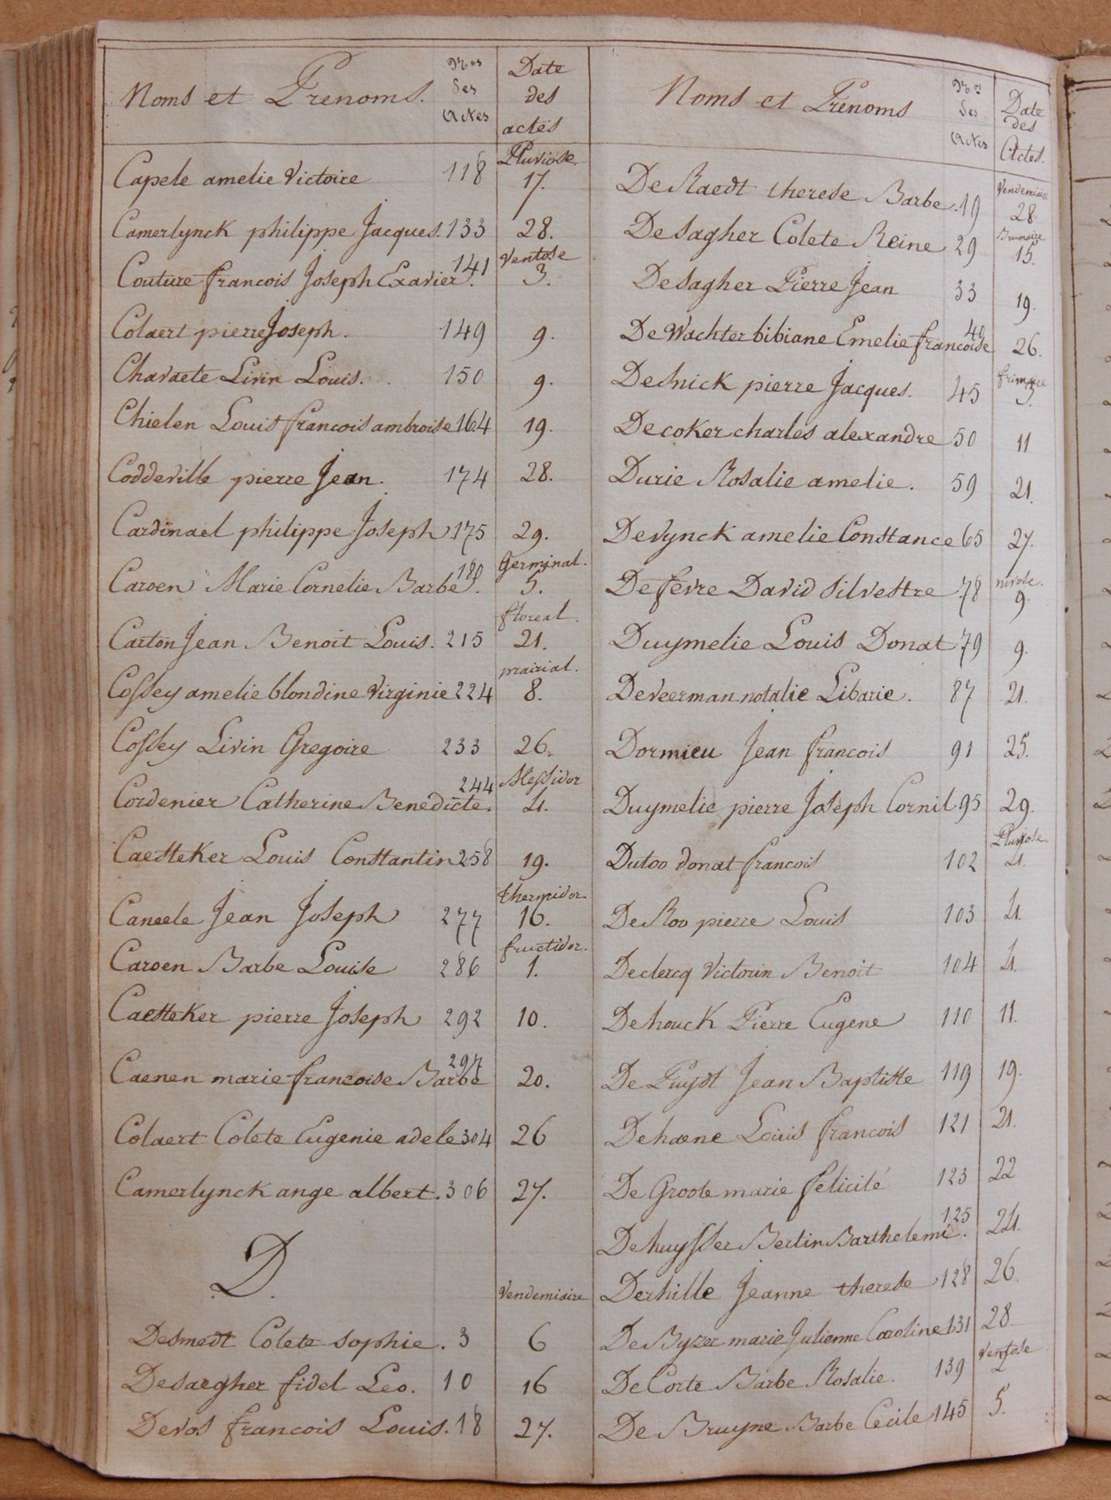 Noms et Prenoms. Nos des Actes Date des actes
Pluviose
Capele amelie Victoire 118 17.
Camerlynck philippe Jacques. 133 28.
Ventose
Couture francois Joseph Exavier. 141 3.
Colaert pierre Joseph. 149 9.
Chavaete Livin Louis. 150 9.
Chielen Louis francois ambroise 164 19.
Coddeville pierre Jean. 174 28.
Cardinael philippe Joseph 175 29.
Germinal.
Caroen Marie Cornelie Barbe. 180 5.
floreal.
Carton Jean Benoit Louis. 215 21.
prairial.
Cossey amelie blondine Virginie 224 8.
Cossey Livin Gregoire 233 26.
Messidor
Cordenier Catherine Benedicte. 244 4.
Caesteker Louis Constantin 258 19.
thermidor
Caneele Jean Joseph 277 16.
fructidor.
Caroen Barbe Louise 286 1.
Caesteker pierre Joseph 292 10.
Caenen marie francoise Barbe 297 20.
Colaert Colete Eugenie adele 304 26
Camerlynck ange albert. 306 27.
D.
Vendemiaire
Desmedt Colete sophie. 3 6
Desaegher fidel Leo. 10 16
Devos francois Louis. 18 27.
Noms et Prenoms Nos des Actes Date des Actes.
Vendemiaire
De Raedt therese Barbe. 19 28
Brumaire
Desagher Colete Reine 29 15.
Desagher Pierre Jean 33 19.
De Wachter bibiane Emelie francoise 40 26.
frimaire
Desnick pierre Jacques. 45 5.
Decoker charles alexandre 50 11
Durie Rosalie amelie. 59 21.
Devynck amelie Constance 65 27.
nivose.
Defevre David Silvestre 78 9.
Duymelie Louis Donat 79 9.
Deveerman natalie Libarie. 87 21.
Dormieu Jean francois 91 25.
Duymelie pierre Joseph Cornil 95 29.
Pluviose
Dutoo donat francois 102 4.
De Roo pierre Louis 103 4.
Declercq Victorin Benoit 104 4.
Dehouck Pierre Eugene 110 11.
De Puydt Jean Baptiste 119 19.
Dehaene Louis francois 121 21.
De Groote marie felicité 123 22
Dehuysser Bertin Barthelemi. 125 24.
Derhille Jeanne therese 128 26.
De Byzer marie Julienne Caroline 131 28
Ventose
De Corte Barbe Rosalie. 139 2
De Bruyne Barbe Cecile 145 5.